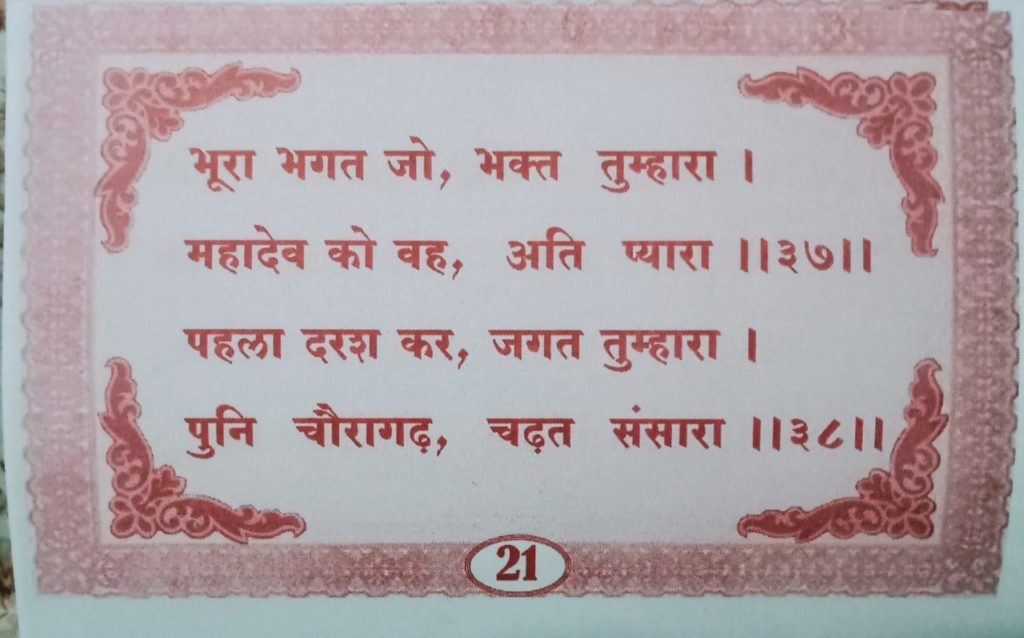 भूरा भगत जो, भक्त तुम्हारा ।
महादेव को वह, अति प्यारा ।।३७।।
पहला दरश कर, जगत तुम्हारा ।
पुनि चौरागढ़, चढ़त संसारा ।।३८।।
21